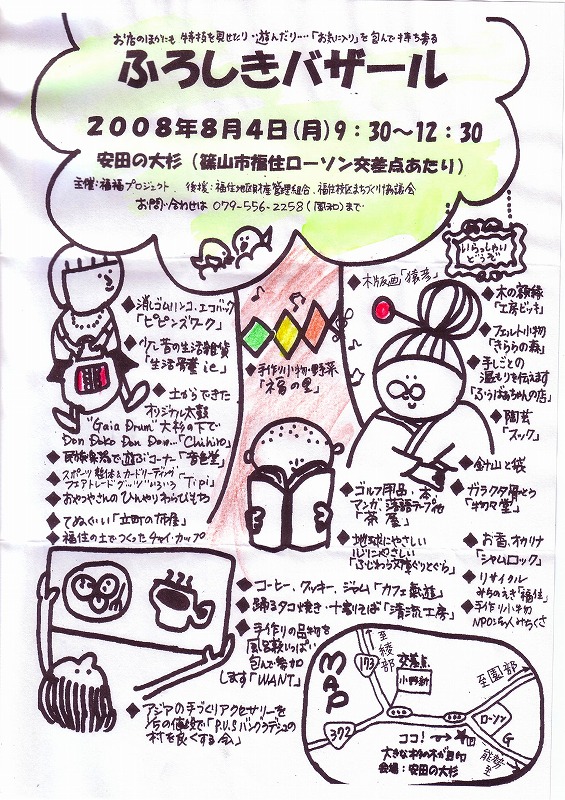 お店のほかにも 特技を見せたり・遊んだり…「お気に入り」を包んで持ち寄る
ふろしきバザール
2008年8月4日(月)9:30～12:30
安田の大杉(篠山市福住ローソン交差点あたり)
主催:福福プロジェクト、後援:福住地区財産管理組合、福住校区まちづくり協議会
お問い合わせは 079-556-2258(風和)まで
いらっしゃい
どうぞ
◆消しゴムハンコ、エコバッグ
「ピピンズワーク」
◆少し昔の生活雑貨
「生活骨董 ie」
◆土からできた
オリジナル太鼓
"Gaia Drum" 大杉の下で
Don Doko Don Don…"Chihiro"
◆民族楽器で遊ぶコーナー「音色堂」
◆スポーツ整体&カードリーディング
フェアトレードグッズいろいろ「Tipi」
◆おやつやさんのひんやりわらびもち
◆てぬぐい「立町の布屋」
◆福住の土でつくったチャイ・カップ
◆手作り小物・野菜
「福の里」
◆木版画「猿彦」
◆木の額縁
「工房ピッキ」
◆フェルト小物
「きららの森」
◆手しごとの
温もりを伝えます
「ふぅばあちゃんの店」
◆陶芸
「フック」
◆針山と袋
◆ガラクタ骨とう
◆お香、オカリナ
「シャムロック」
◆リサイクル
みちのえき「福住」
◆手作り小物
NPO法人みちくさ
◆ゴルフ用品、本
マンガ、落語テープ他
「茶屋」
◆地球にやさしい
心にやさしい
「ふじわら文庫ぐりとぐら」
◆コーヒー、クッキー、ジャム「カフェ氣遊」
◆踊るタコ焼き・十割そば「清流工房」
◆手作りの品物を
風呂敷いっぱい
包んで参加
します「WANT」
◆アジアの手づくりアクセサリーを
「P.U.S バングラデシュの
村を良くする会」
MAP
至綾部
173
交差点
小野新
至園部
372
ココ!
ローソン
G
大きな杉の木が目印
会場:安田の大杉
能勢
至